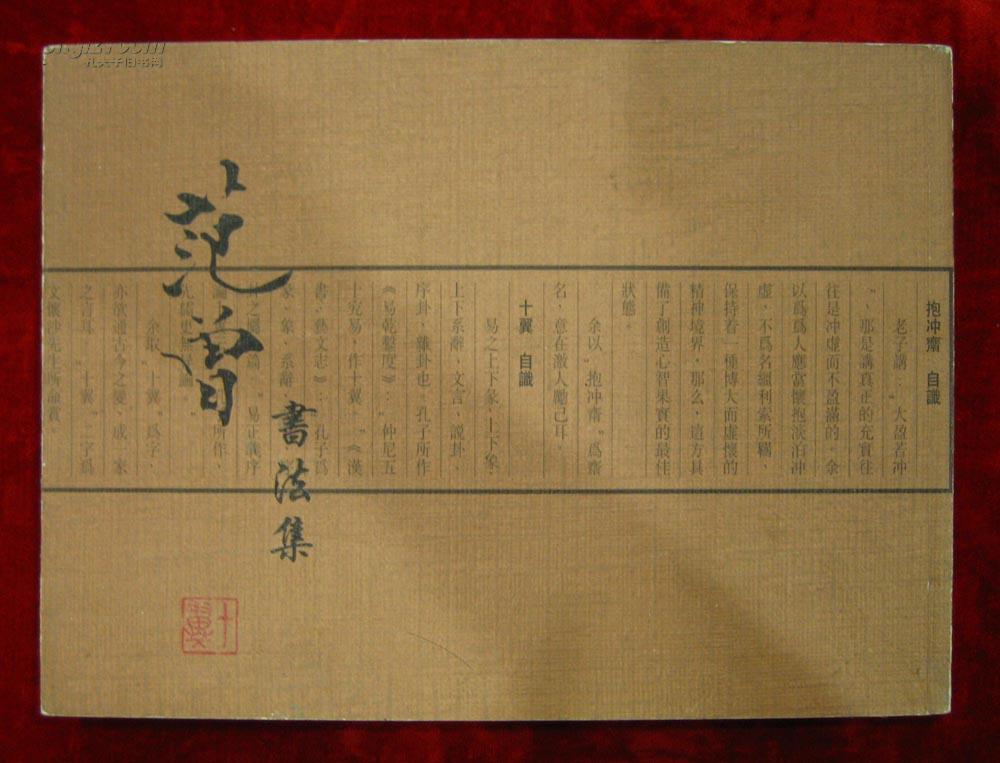 范曾
書法集
十翼
抱冲齋 自識
老子講：“大盈若冲
”，那是講真正的充實往
往是冲虛而不盈滿的。余
以爲爲人應當懷抱淡泊冲
虛，不爲名繮利索所羈，
保持着一種博大而虛懷的
精神境界，那么，這方具
備了創造心智果實的最佳
狀態。
余以“抱冲齋”爲齋
名，意在激人勵己耳。
十翼 自識
易之上下彖，上下象，
上下系辭，文言，説卦，
序卦，雜卦也。孔子所作
《易乾鑿度》：“仲尼五
十究易，作十翼。”《漢
書·藝文志》：“孔子爲
彖、象、系辭
易正義序
所作，
余取“十翼”爲字，
亦欲通古今之變，成一家
之言耳。“十翼”二字爲
文懷沙先生所論賞
孔夫子旧书网